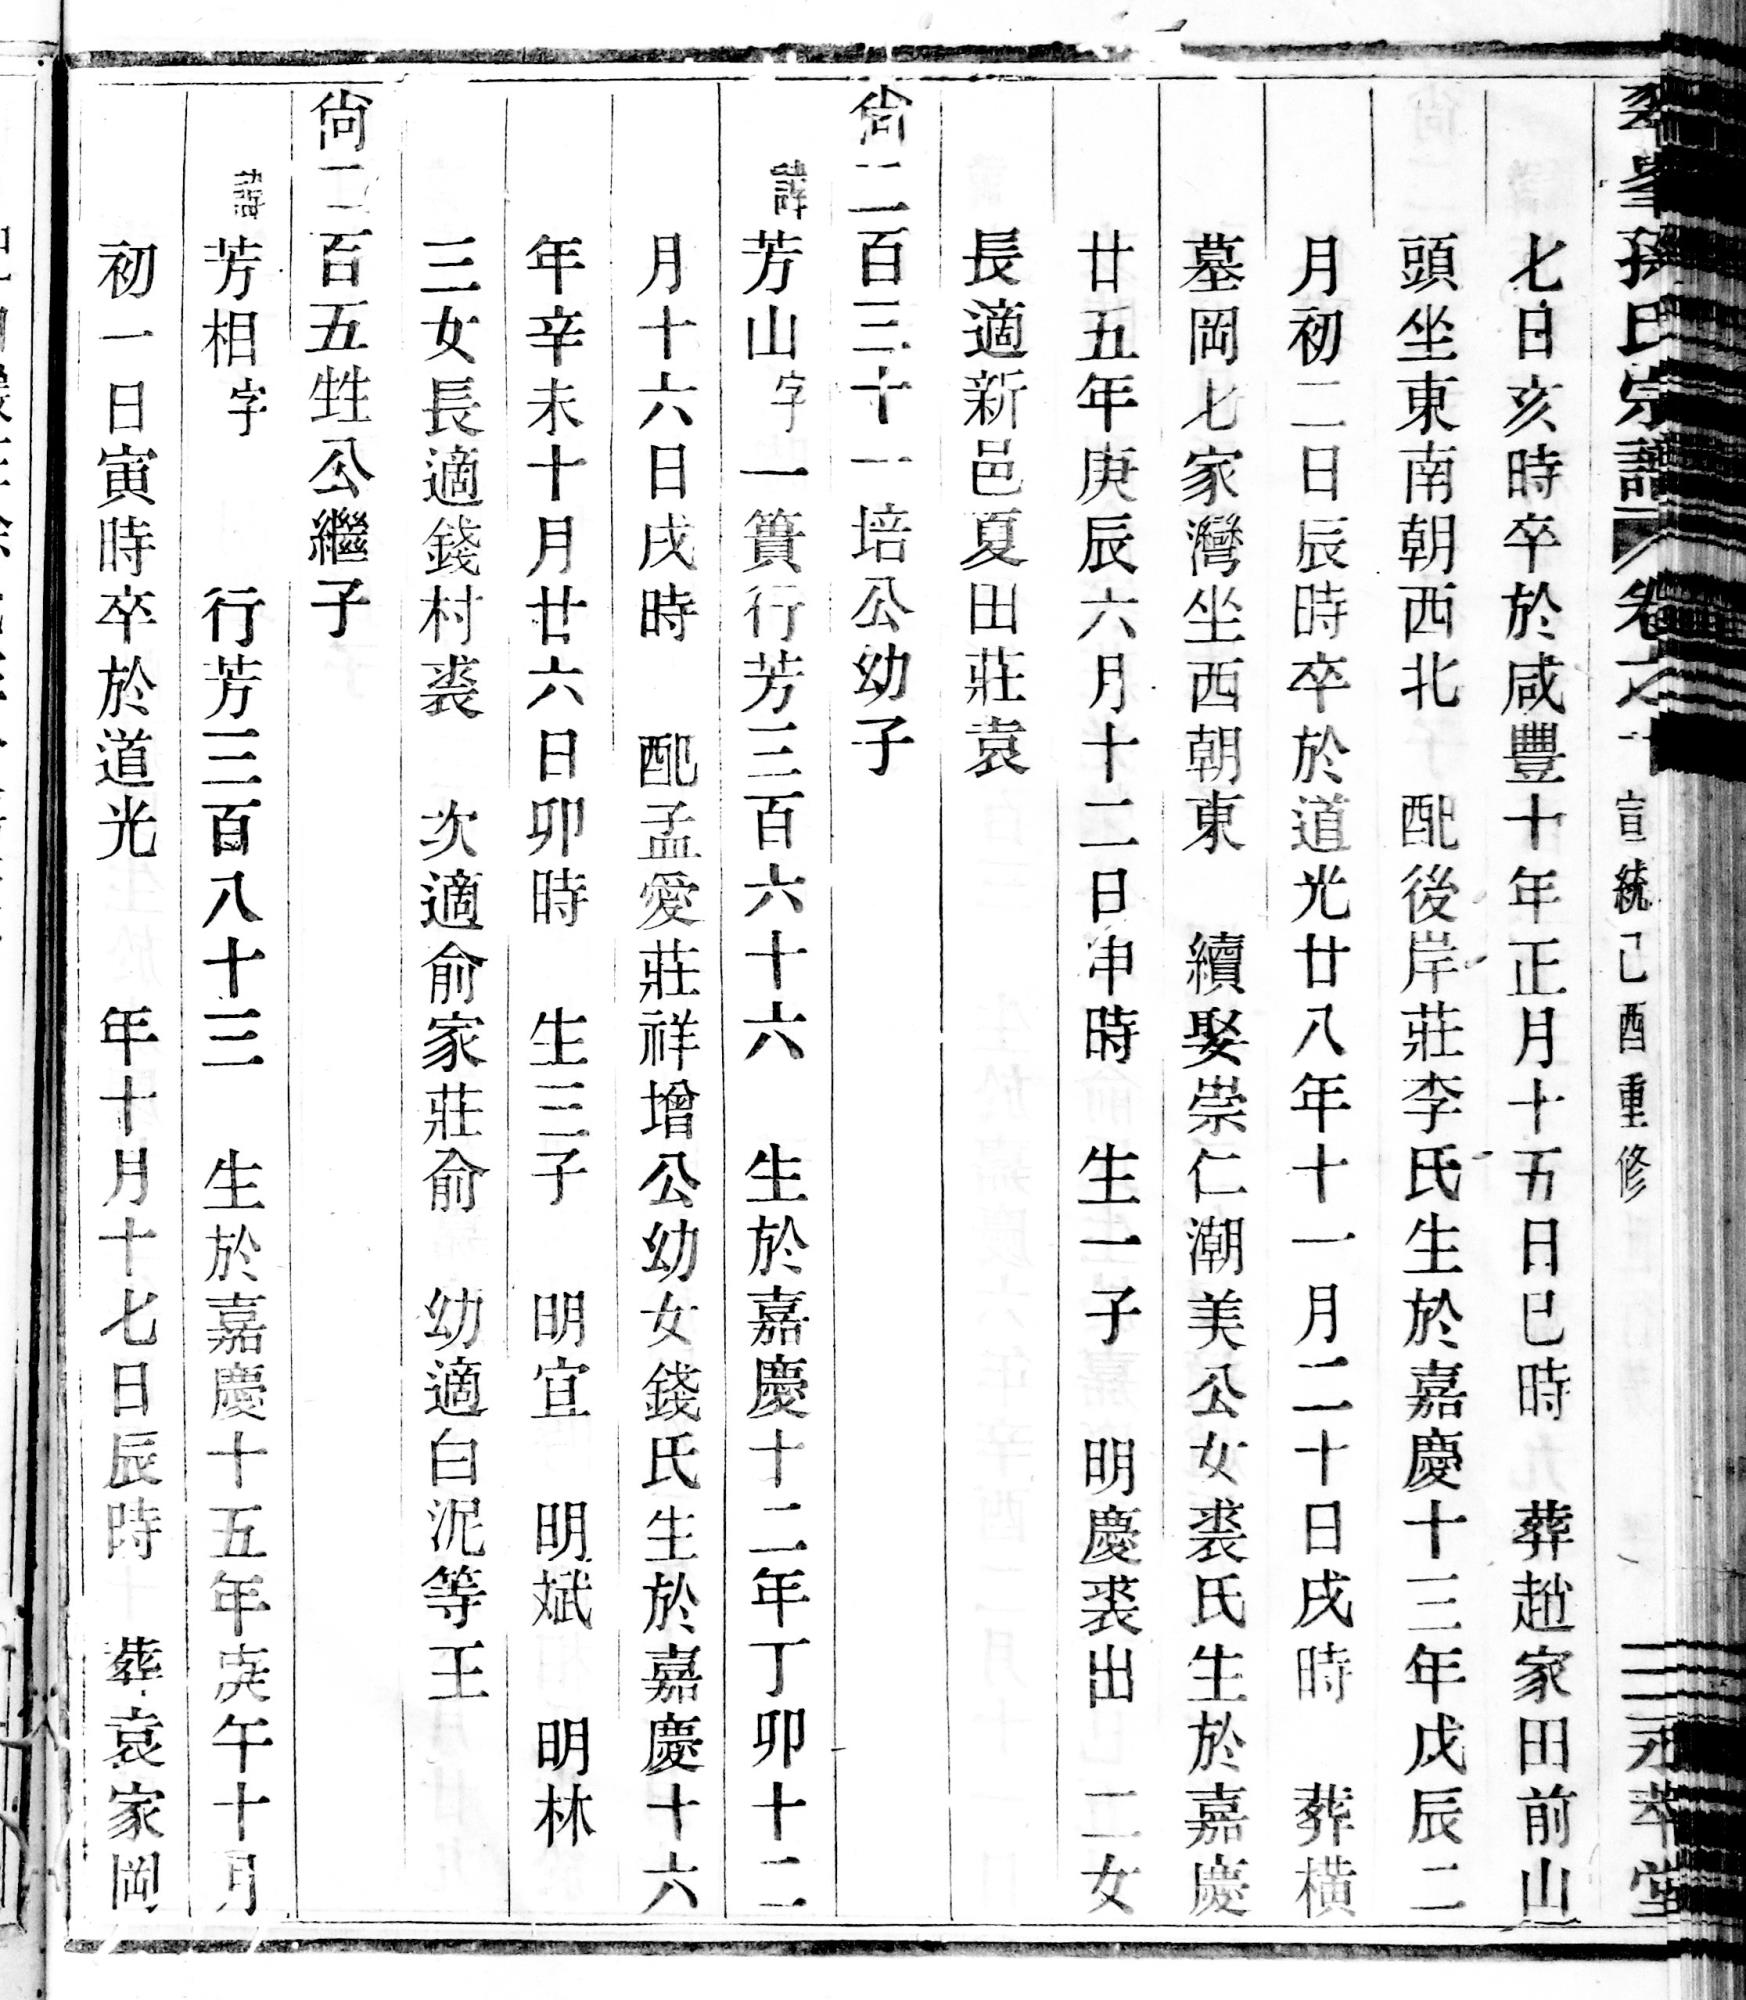 孫氏宗譜 卷之十 宣統己酉重修 永萃堂
七日亥時卒於咸豐十年正月十五日巳時 葬趙家田前山
頭坐東南朝西北 配後岸莊李氏生於嘉慶十三年戊辰二
月初二日辰時卒於道光廿八年十一月二十日戌時 葬橫
墓岡七家灣坐西朝東 續娶崇仁潮美公女裘氏生於嘉慶
廿五年庚辰六月十二日申時 生一子 明慶裘出 二女
長適新邑夏田莊袁
尙二百三十一培公幼子
諱芳山字 一簣行芳三百六十六 生於嘉慶十二年丁卯十二
月十六日戌時 配孟愛莊祥增公幼女錢氏生於嘉慶十六
年辛未十月廿六日卯時 生三子 明宜 明斌 明林
三女長適錢村裘 次適俞家莊俞 幼適白泥等王
尙二百五甡公繼子
諱芳相字 行芳三百八十三 生於嘉慶十五年庚午十月
初一日寅時卒於道光 年十月十七日辰時 葬袁家岡